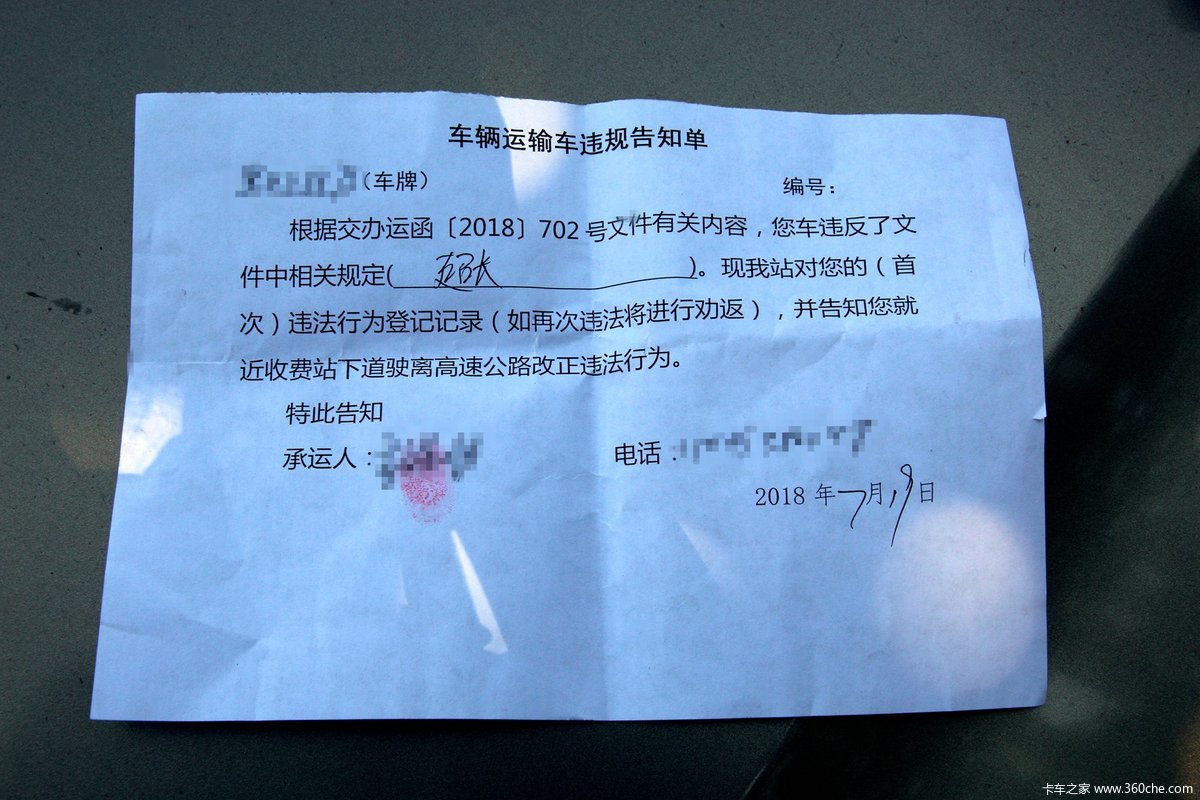 车辆运输车违规告知单
（车牌）
编号：
根据交办运函〔2018〕702 号文件有关内容，您车违反了文
件中相关规定(超长)。现我站对您的（首
次）违法行为登记记录（如再次违法将进行劝返），并告知您就
近收费站下道驶离高速公路改正违法行为。
特此告知
承运人：
电话：
2018 年 7 月 19 日
卡车之家 www.360che.com